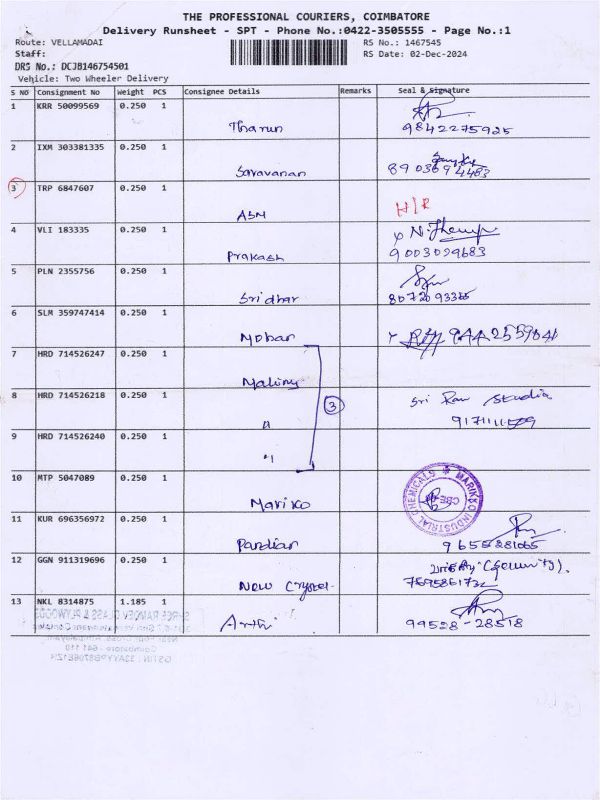 THE PROFESSIONAL COURIERS, COIMBATORE
Delivery Runsheet - SPT - Phone No.:0422-3505555 - Page No.:1
Route: VELLAMADAI RS No.: 1467545
Staff: RS Date: 02-Dec-2024
DRS No.: DCJB146754501
Vehicle: Two Wheeler Delivery
S NO Consignment No Weight PCS Consignee Details Remarks Seal & Signature
1 KRR 50099569 0.250 1 Tharun 9842275925
2 IXM 303381335 0.250 1 Saravanan 8903694483
3 TRP 6847607 0.250 1 ASM H/R
4 VLI 183335 0.250 1 Prakash 9003029683
5 PLN 2355756 0.250 1 Sridhar
6 SLM 359747414 0.250 1 Mohan
7 HRD 714526247 0.250 1
8 HRD 714526218 0.250 1 " Sri Ram Studio
3
9 HRD 714526240 0.250 1 "
10 MTP 5047089 0.250 1 Mariko MARIKKO INDUSTRIAL CHEMICALS
11 KUR 696356972 0.250 1 Pandian 9655281065
12 GGN 911319696 0.250 1 New Crystal (Security). 7695861732
13 NKL 8314875 1.185 1 Arthi 99528-28518
Coimbatore - 641 110